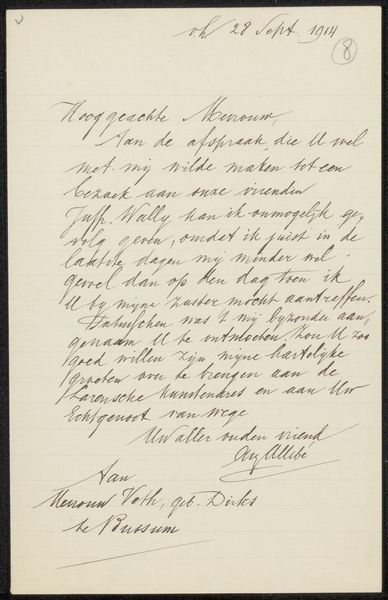 v.h 28 Sept. 1914
8
Hooggeachte Mevrouw,
Aan de afspraak die U wel
met mij wilde maken tot een
bezoek aan onze vrienden
Juffr. Wally kan ik onmogelijk ge-
volg geven, omdat ik juist in de
laatste dagen mij minder wel-
gevoel dan op den dag toen ik
U bij mijne zuster mocht aantreffen.
Intusschen was 't mij byzonder aan-
genaam U te ontmoeten. Zou U zoo
goed willen zijn mijne hartelijke
groeten over te brengen aan de
Larensche kunstenares en aan Uw
Echtgenoot van wege
Uw aller ouden vriend
Aug Allebé
Aan
Mevrouw Veth, geb. Dirks
te Bussum